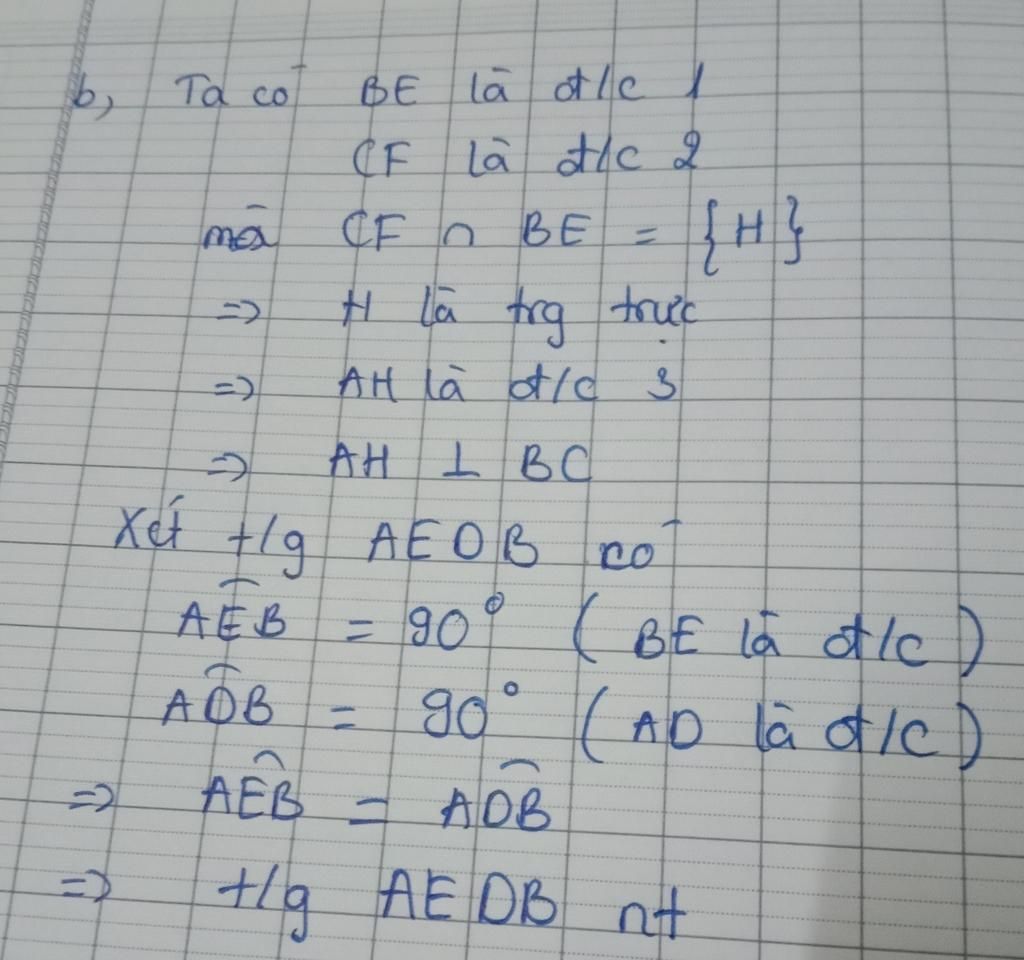 b, Ta có BE là đ/c 1
CF là đ/c 2
mà CF ∩ BE = {H}
=> H là trg trực
=> AH là đ/c 3
=> AH ⊥ BC
Xét t/g AEDB có
AÊB = 90° ( BE là đ/c )
AD̂B = 90° ( AD là đ/c )
=> AÊB = AD̂B
=> t/g AEDB nt